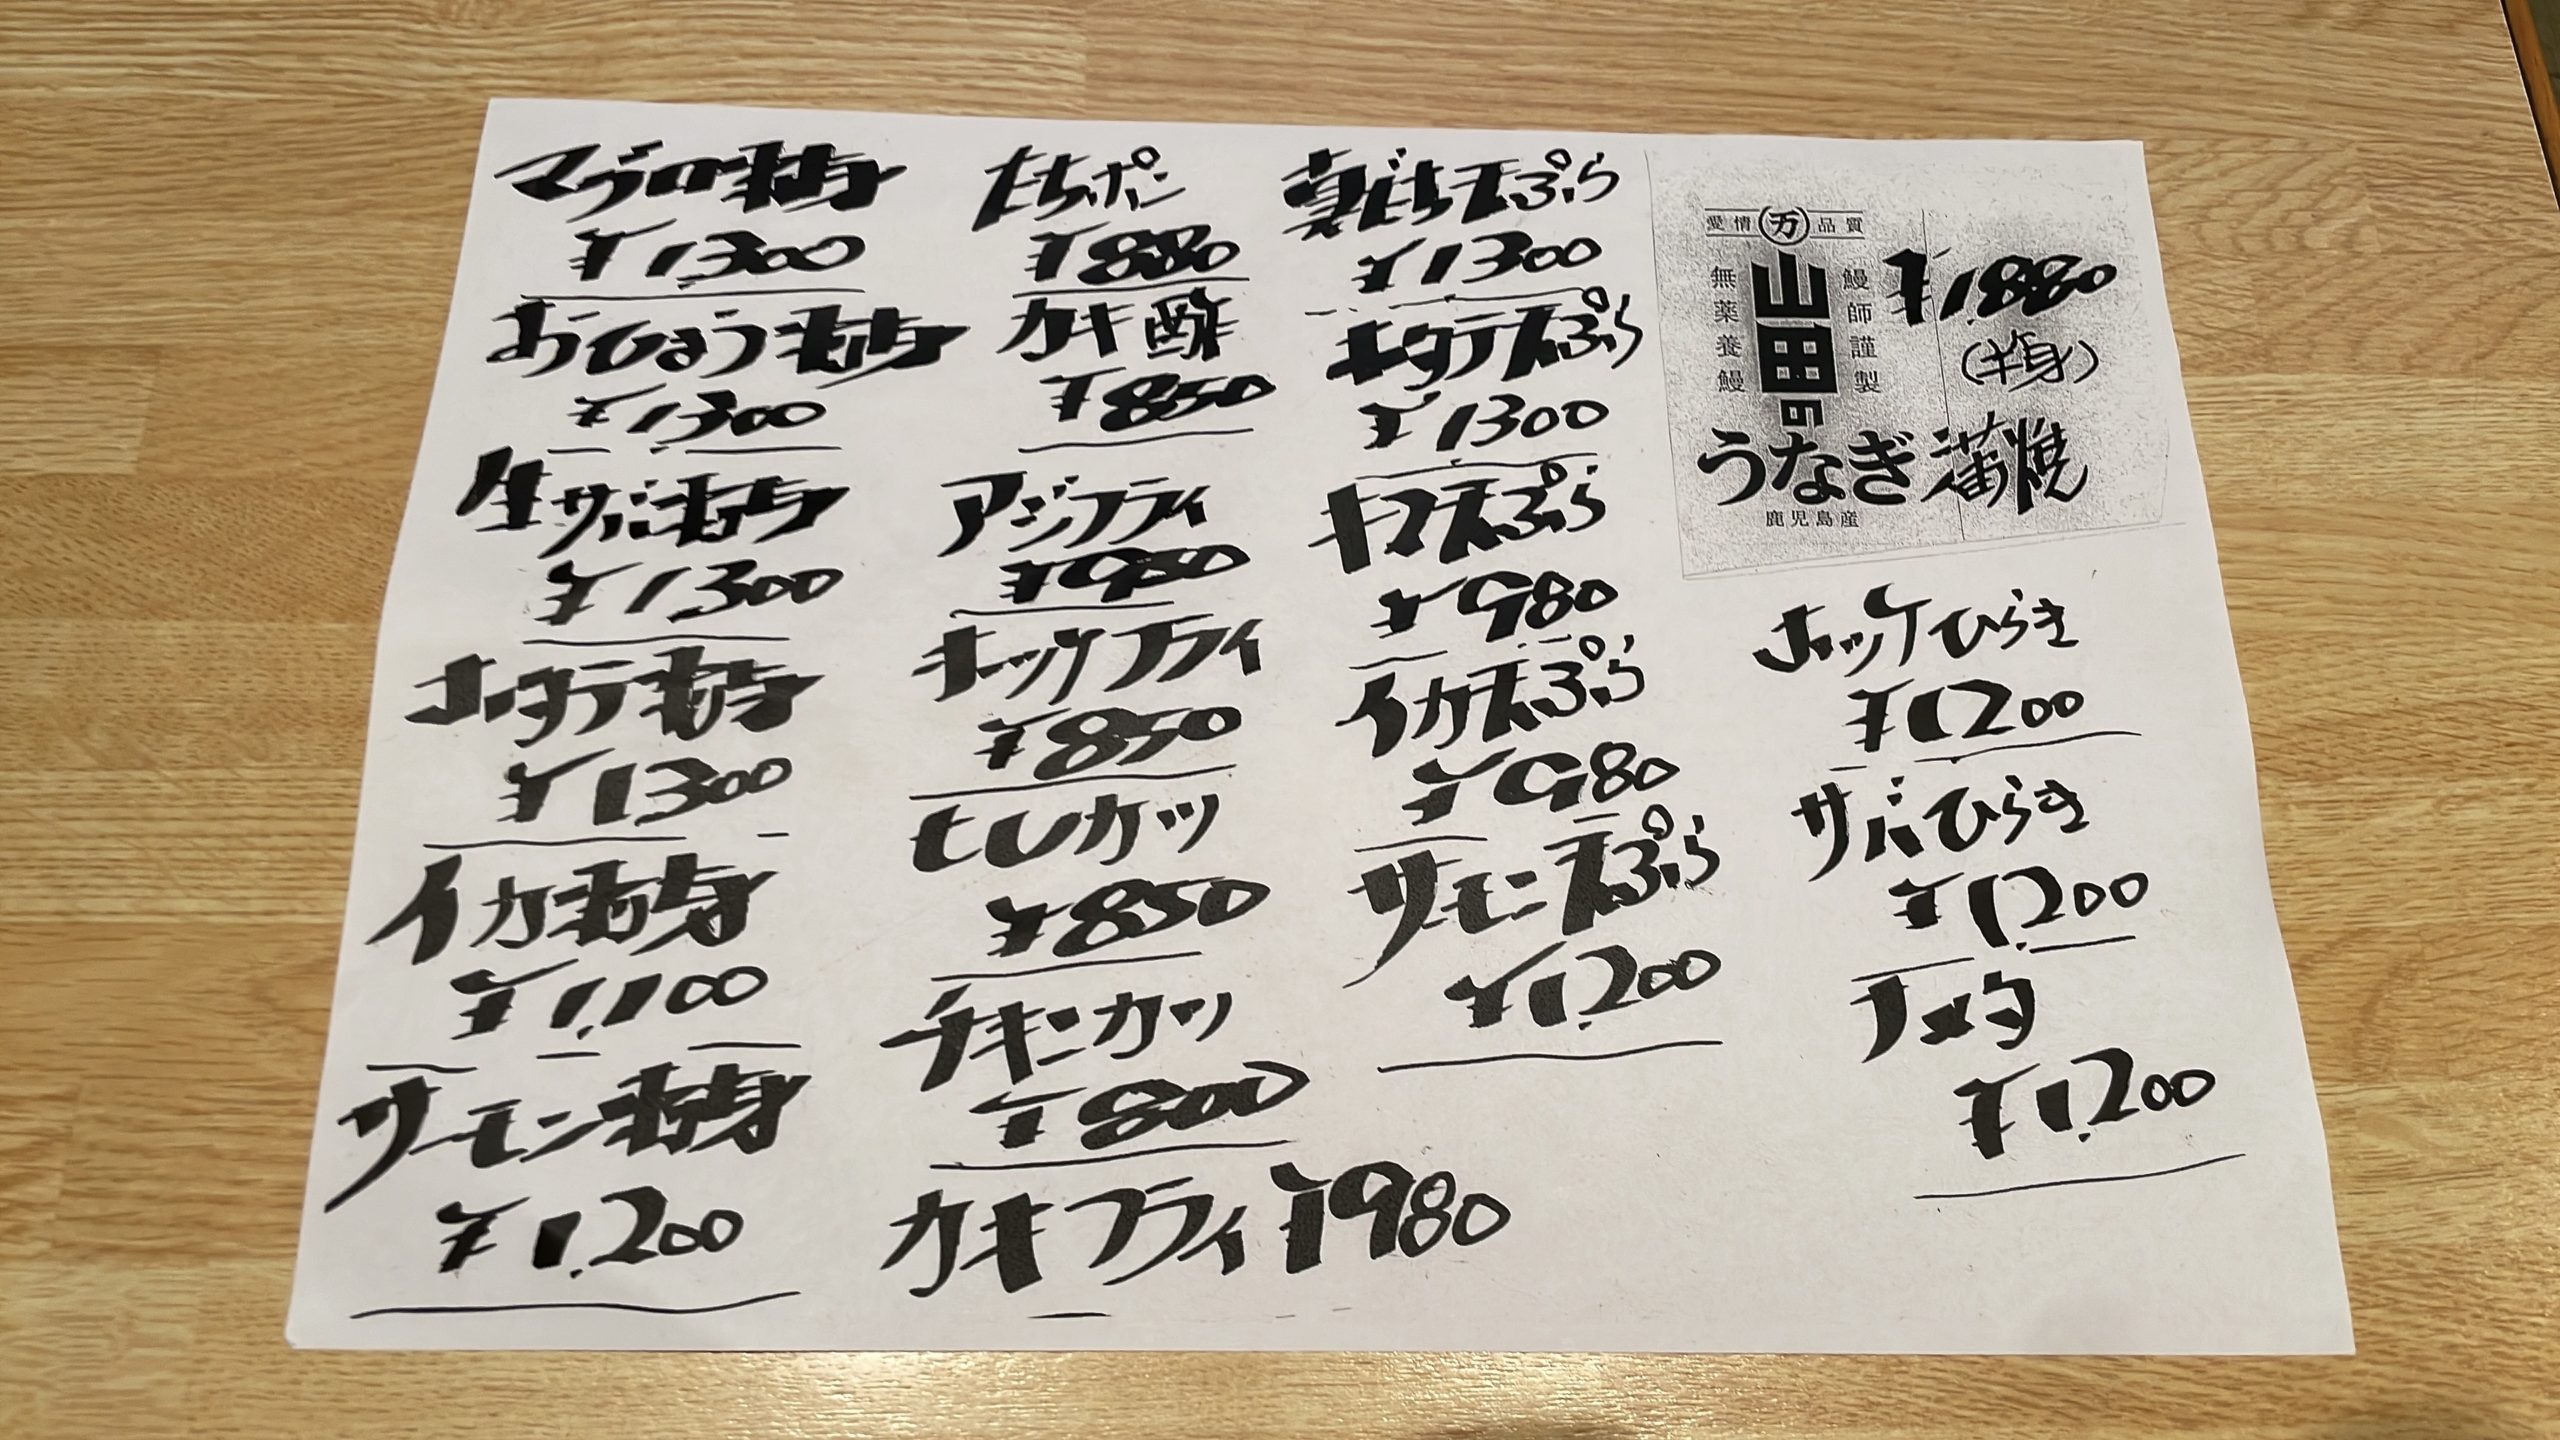 マグロ刺身
¥1,300
おひょう刺身
¥1300
生サバ刺身
¥1,300
ホタテ刺身
¥1,300
イカ刺身
¥1,100
サーモン刺身
¥1,200
たちポン
¥880
カキ酢
¥850
アジフライ
¥980
ホッケフライ
¥850
ヒレカツ
¥850
チキンカツ
¥800
カキフライ ¥980
真だち天ぷら
¥1300
ホタテ天ぷら
¥1300
キス天ぷら
¥980
イカ天ぷら
¥980
サーモン天ぷら
¥1,200
愛情 万 品質
無薬養鰻
山田の
鰻師謹製
¥1,880
(半身)
うなぎ蒲焼
鹿児島産
ホッケひらき
¥1200
サバひらき
¥1,200
ナメタ
¥1,200